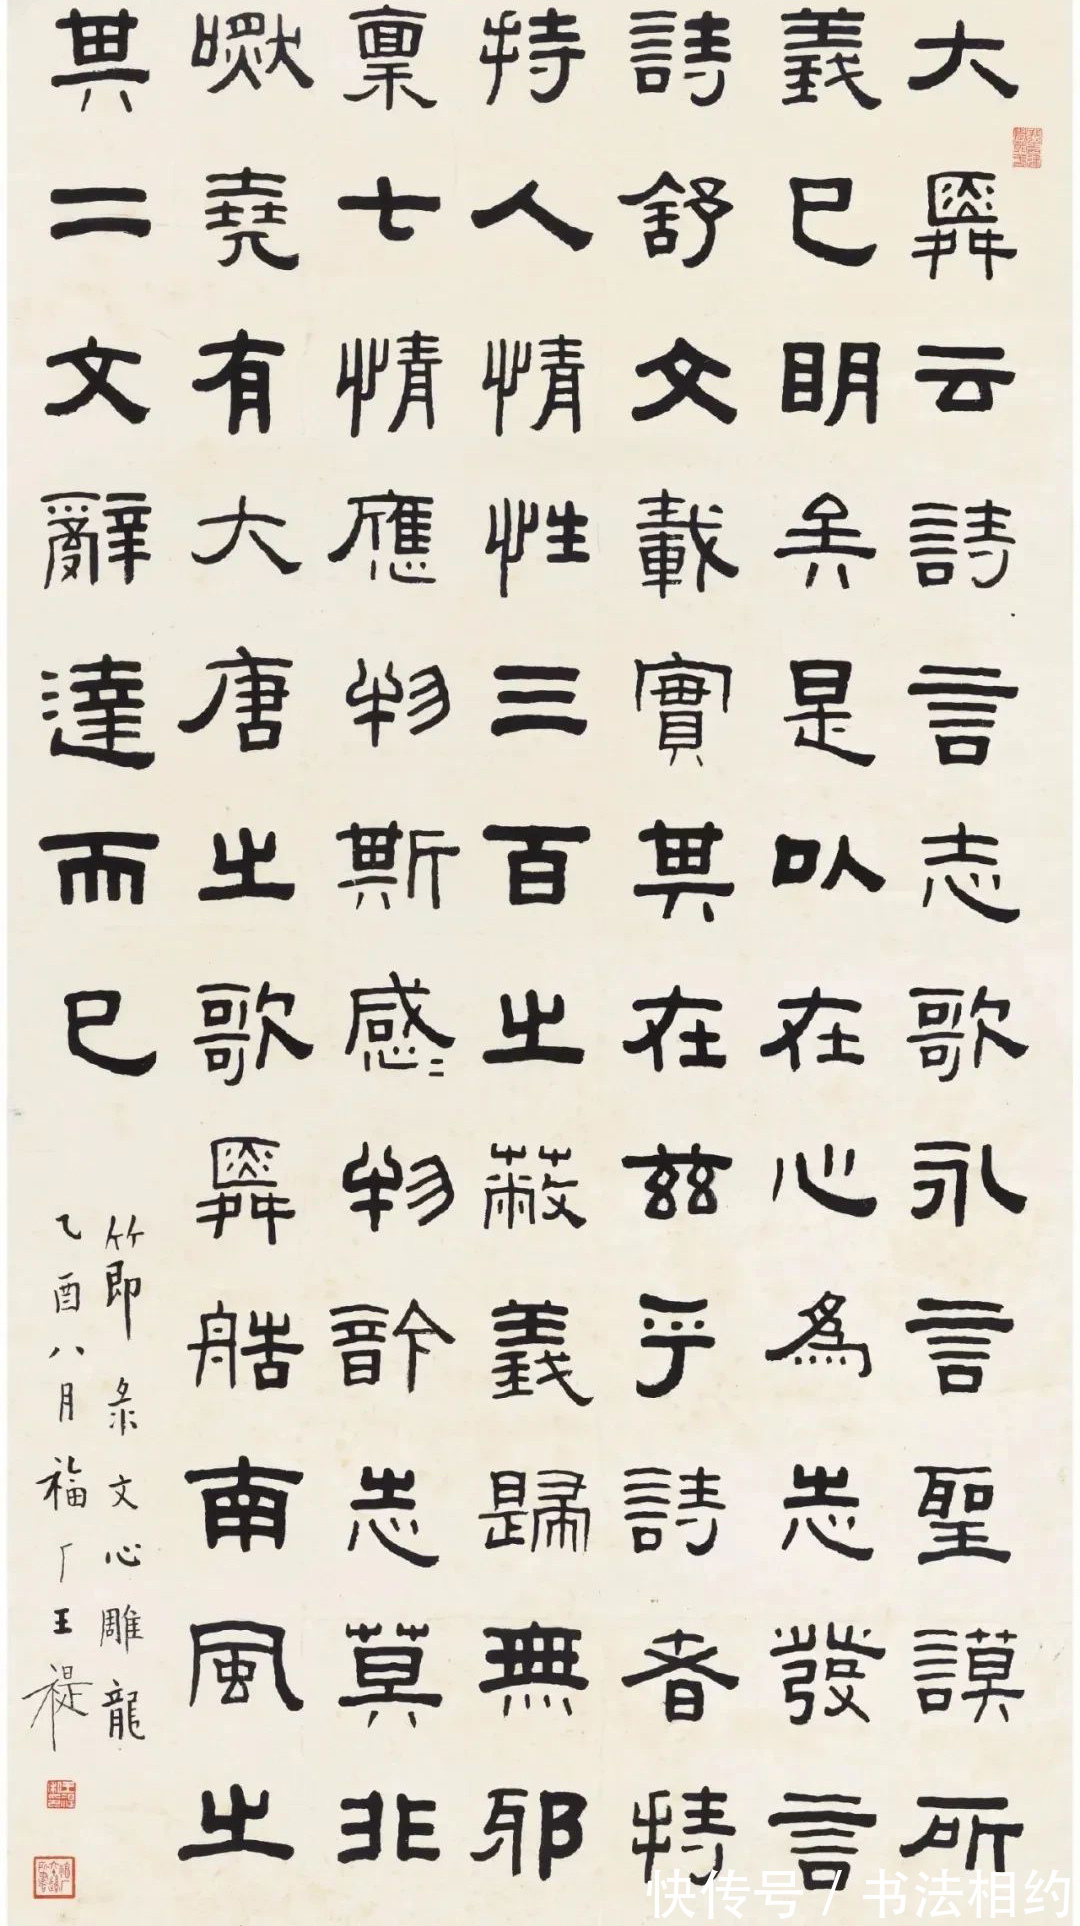 大舜云詩言志歌永言聖謨所
義已明矣是以在心為志發言
詩舒文載實其在茲乎詩者持
持人情性三百之蔽義歸無邪
稟七情應物斯感〻物吟志莫非
嘫堯有大唐之歌舜艁南風之
其二文辭達而已
節錄文心雕龍
乙酉八月福厂王禔
快传号 / 书法相约